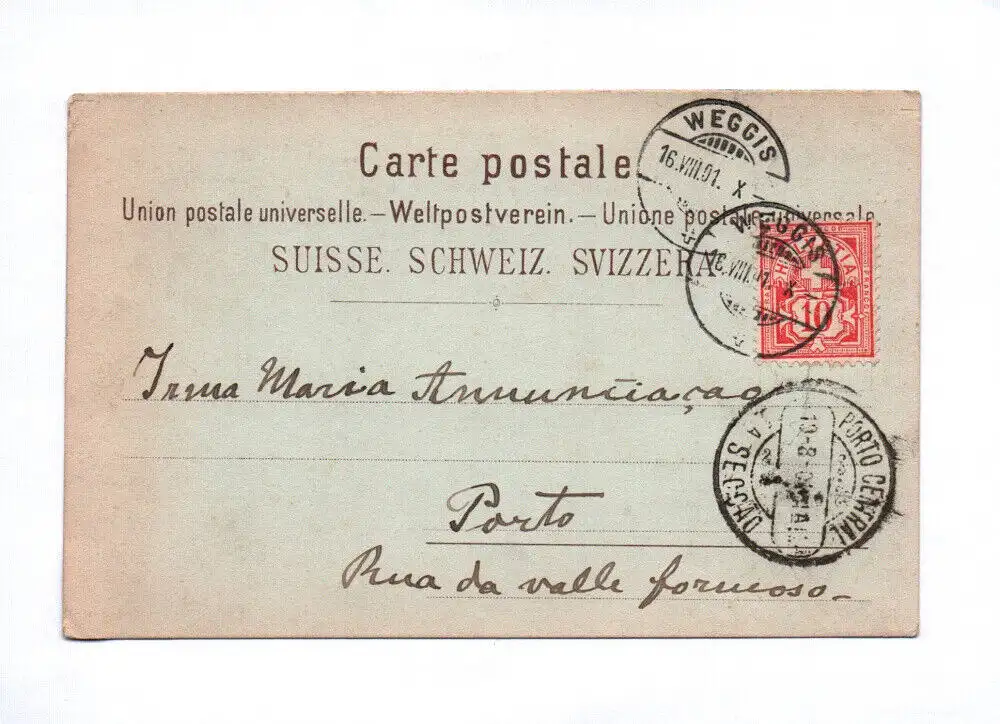 Carte postale
Union postale universelle.—Weltpostverein.—Unione postale universale
SUISSE. SCHWEIZ. SVIZZERA
WEGGIS
16.VIII.01. X
WEGGIS
16.VIII.01. X
HELVETIA
10
Irma Maria Annunciaçao
PORTO CENTRAL
SECÇÃO
Porto
Rua da valle formoso.